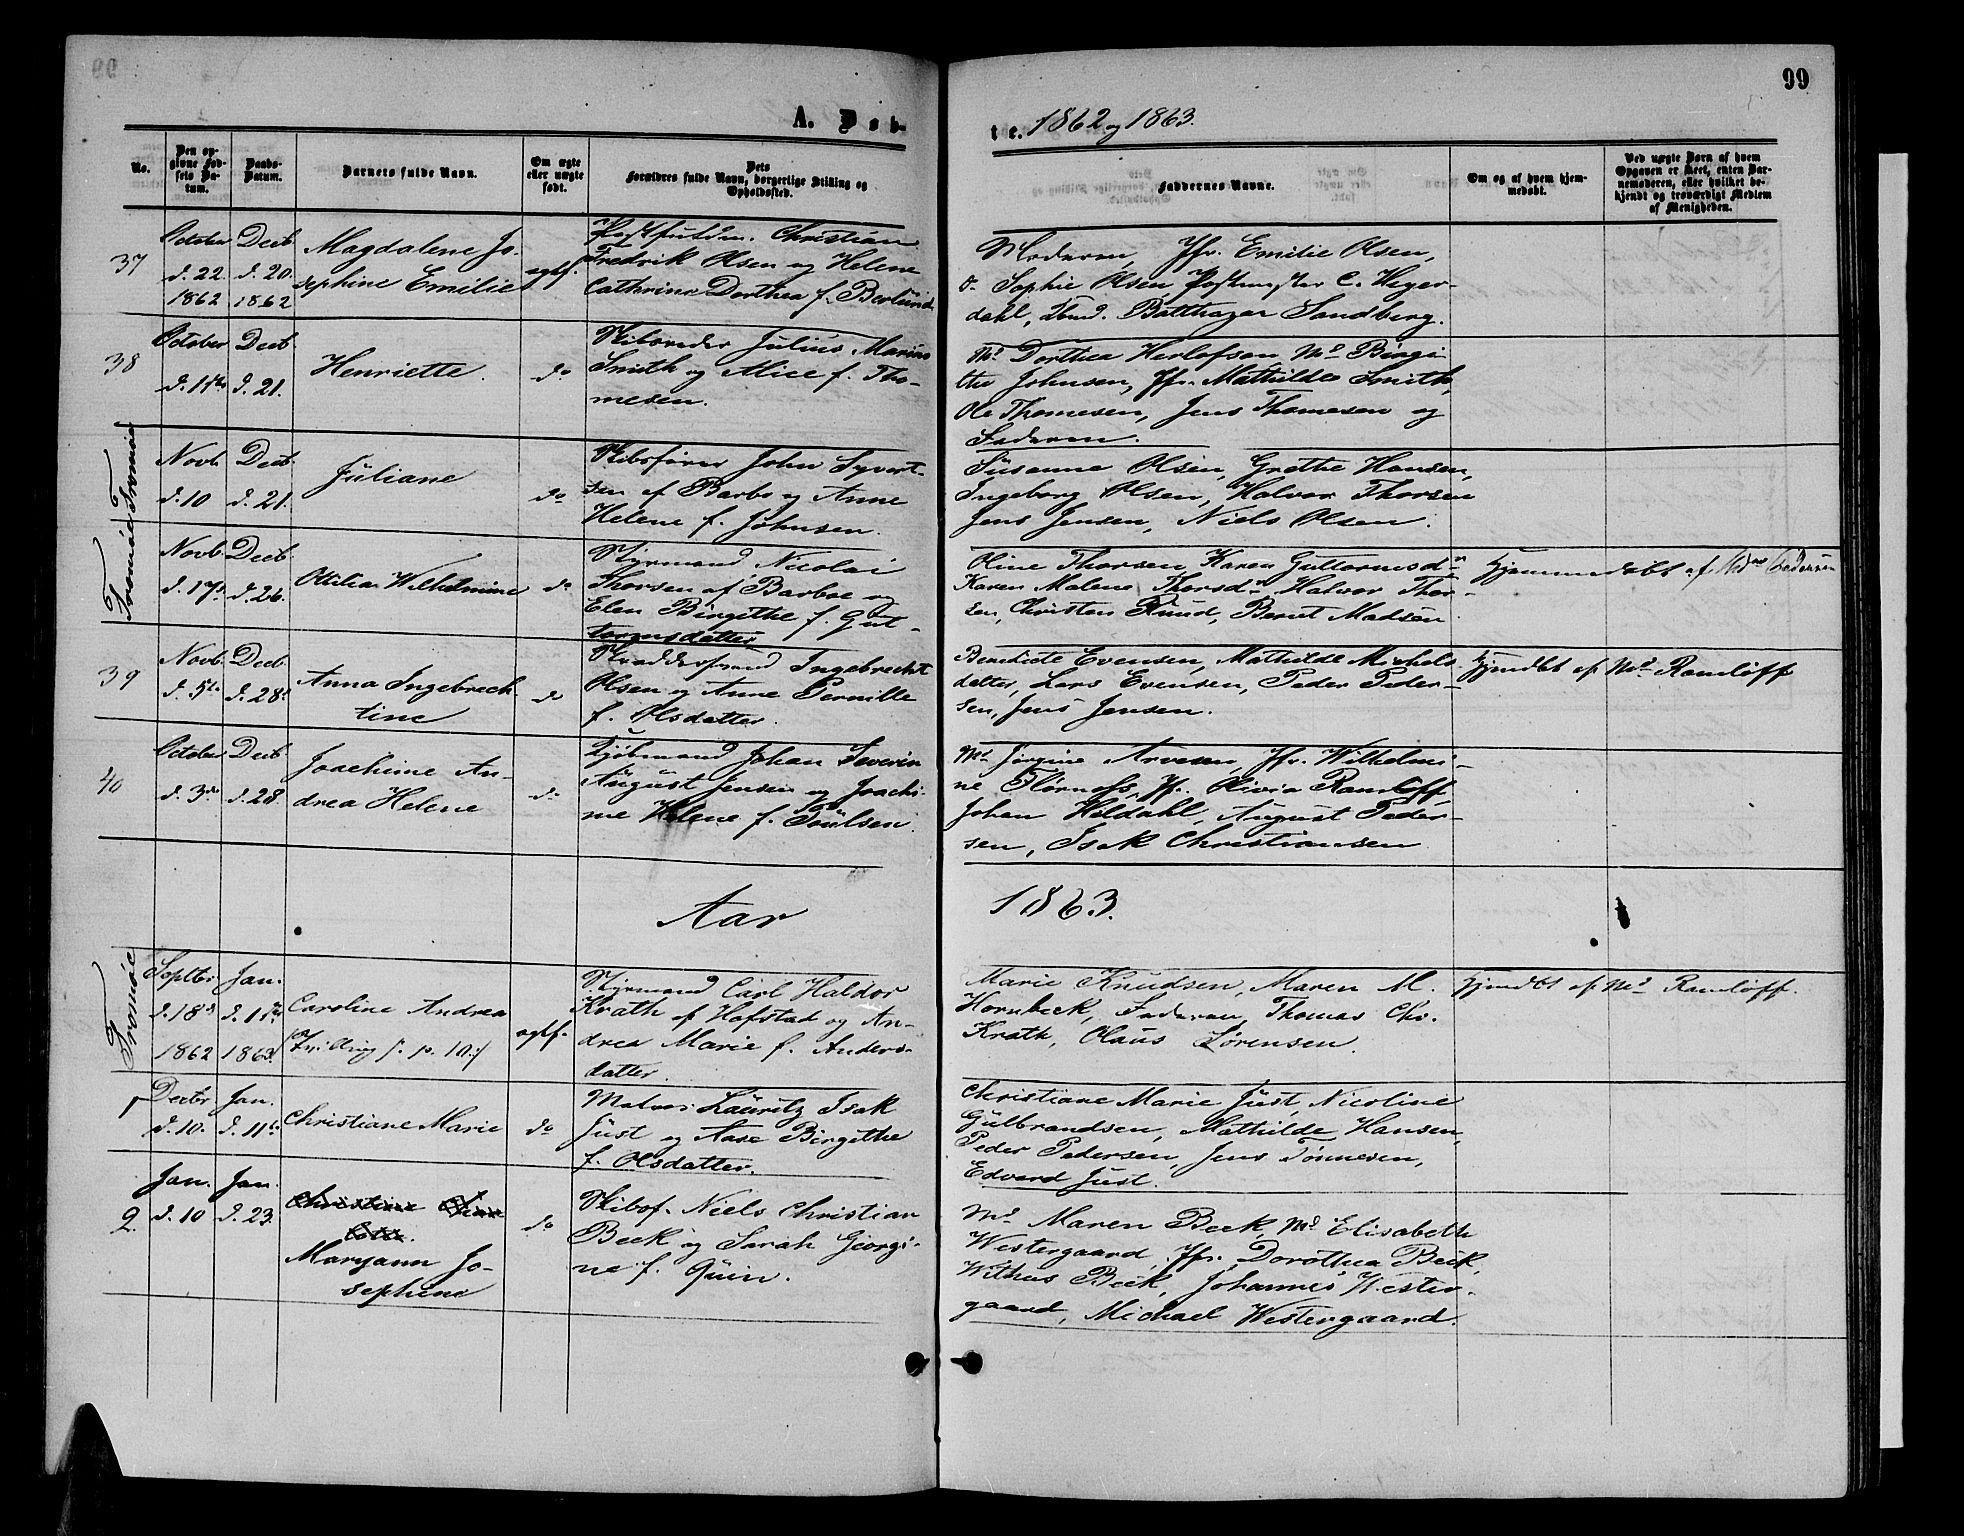 99
A. Døb-
te. 1862 og 1863.
No.
Den op-
givne Fød-
sels Da-
tum.
Daabs-
Datum.
Barnets fulde Navn.
Om ægte
eller uægte
født.
Dets
Forældres fulde Navn, borgerlige Stilling og
Opholdssted.
Faddernes Navne.
Om og af hvem hjem-
medøbt.
Ved uægte Børn af hvem
Opgaven er skeet, enten Bar-
nemoderen, eller hvilket be-
kjendt og troværdigt Medlem
af Menigheden.
37
October
d. 22.
1862
Decb.
d. 20.
1862
Magdalene Jo-
sephine Emilie
ægtf.
Christian
Fredrik Olsen og Helene
Cathrine Dorthea f. Berlund
Moderen, Jfr. Emilie Olsen,
Sophie Olsen Postmester C. Heger-
dahl, Balthazar Sandberg.
38
October
d. 15de
Decb.
d. 21.
Henriette.
do
Skibsreder Julius Marius
Smith og Alice f. Tho-
mesen.
Md Dorthea Herlofsen Md Birgi-
the Johnsen, Jfr. Mathilde Smith,
Ole Thomesen, Jens Thomesen og
Faderen.
Tromøe
Novb.
d. 10
Decb.
d. 21.
Juliane
do
Skibsfører John Syvert-
sen af Barbo og Anne
Helene f. Johnsen.
Susanne Olsen, Grethe Hansen,
Ingeborg Olsen, Halvor Thorsen
Jens Jensen, Niels Olsen.
Tromøe
Novb.
d. 17d
Decb.
d. 26.
Otilia Wilhelmine
do
Styrmand Nicolai
Thorsen af Barboe og
Elen Birgithe f. Gut-
tormsdatter
Oline Thorsen Karen Guttormsd.
Karen Malene Thorsd. Halvor Thor-
sen, Christen Knud, Bernt Madsen
Hjemmedøbt af Mdme Pedersen
39
Novb.
d. 5te
Decb.
d. 28d
Anna Ingebrech-
tine
do
Skreddersvend Ingebrecht
Olsen og Anne Pernille
f. Olsdatter.
Benedicte Evensen, Mathilde Michels-
datter, Lars Evensen, Peder Peder-
sen, Jens Jensen.
hjmdbt af Md Ramløff
40
October
d. 3die
Decb
d. 28.
Joachime An-
drea Helene
do
Kjøbmand Johan Severin
August Jensen og Joachi-
me Helene f. Poulsen.
Md Jørgine Arvesen, Jfr. Wilhelmi-
ne Jf. Olivia Ramløff
Johan Heldahl, August Peder-
sen, Isak Christiansen
Aar 1863.
Tromøe
Septbr
d. 18d
1862
Jan.
d. 1ste
1863.
Caroline Andrea
(Tvilling f. p. 10.)
ægtf.
Styrmand Carl Haldor
Krath af Hofstad og An-
drea Marie f. Anders-
datter.
Marie Knudsen, Maren M.
Hornbeck, Faderen, Thomas Chr.
Krath, Olaus Sørensen.
hjmdbt af Md Ramløff.
1
Decbr
d. 10.
Jan.
d. 11te
Christiane Marie
do
Matros Lauritz Isak
Just og Aase Birgithe
f. Olsdatter.
Christiane Marie Just, Nicoline
Gulbrandsen, Mathilde Hansen,
Peder Pedersen, Jens Tønnesen,
Edvard Just.
2.
Jan.
d. 10
Jan.
d. 23.
Maryann Jo-
sephine
do
Skibsf. Niels Christian
Beck og Sarah Georgi-
ne f. Quin.
Md Maren Beck, Md Elisabeth
Westergaard, Jfr. Dorothea Beck,
Withus Beck, Johannes Wester-
gaard, Michael Westergaard.